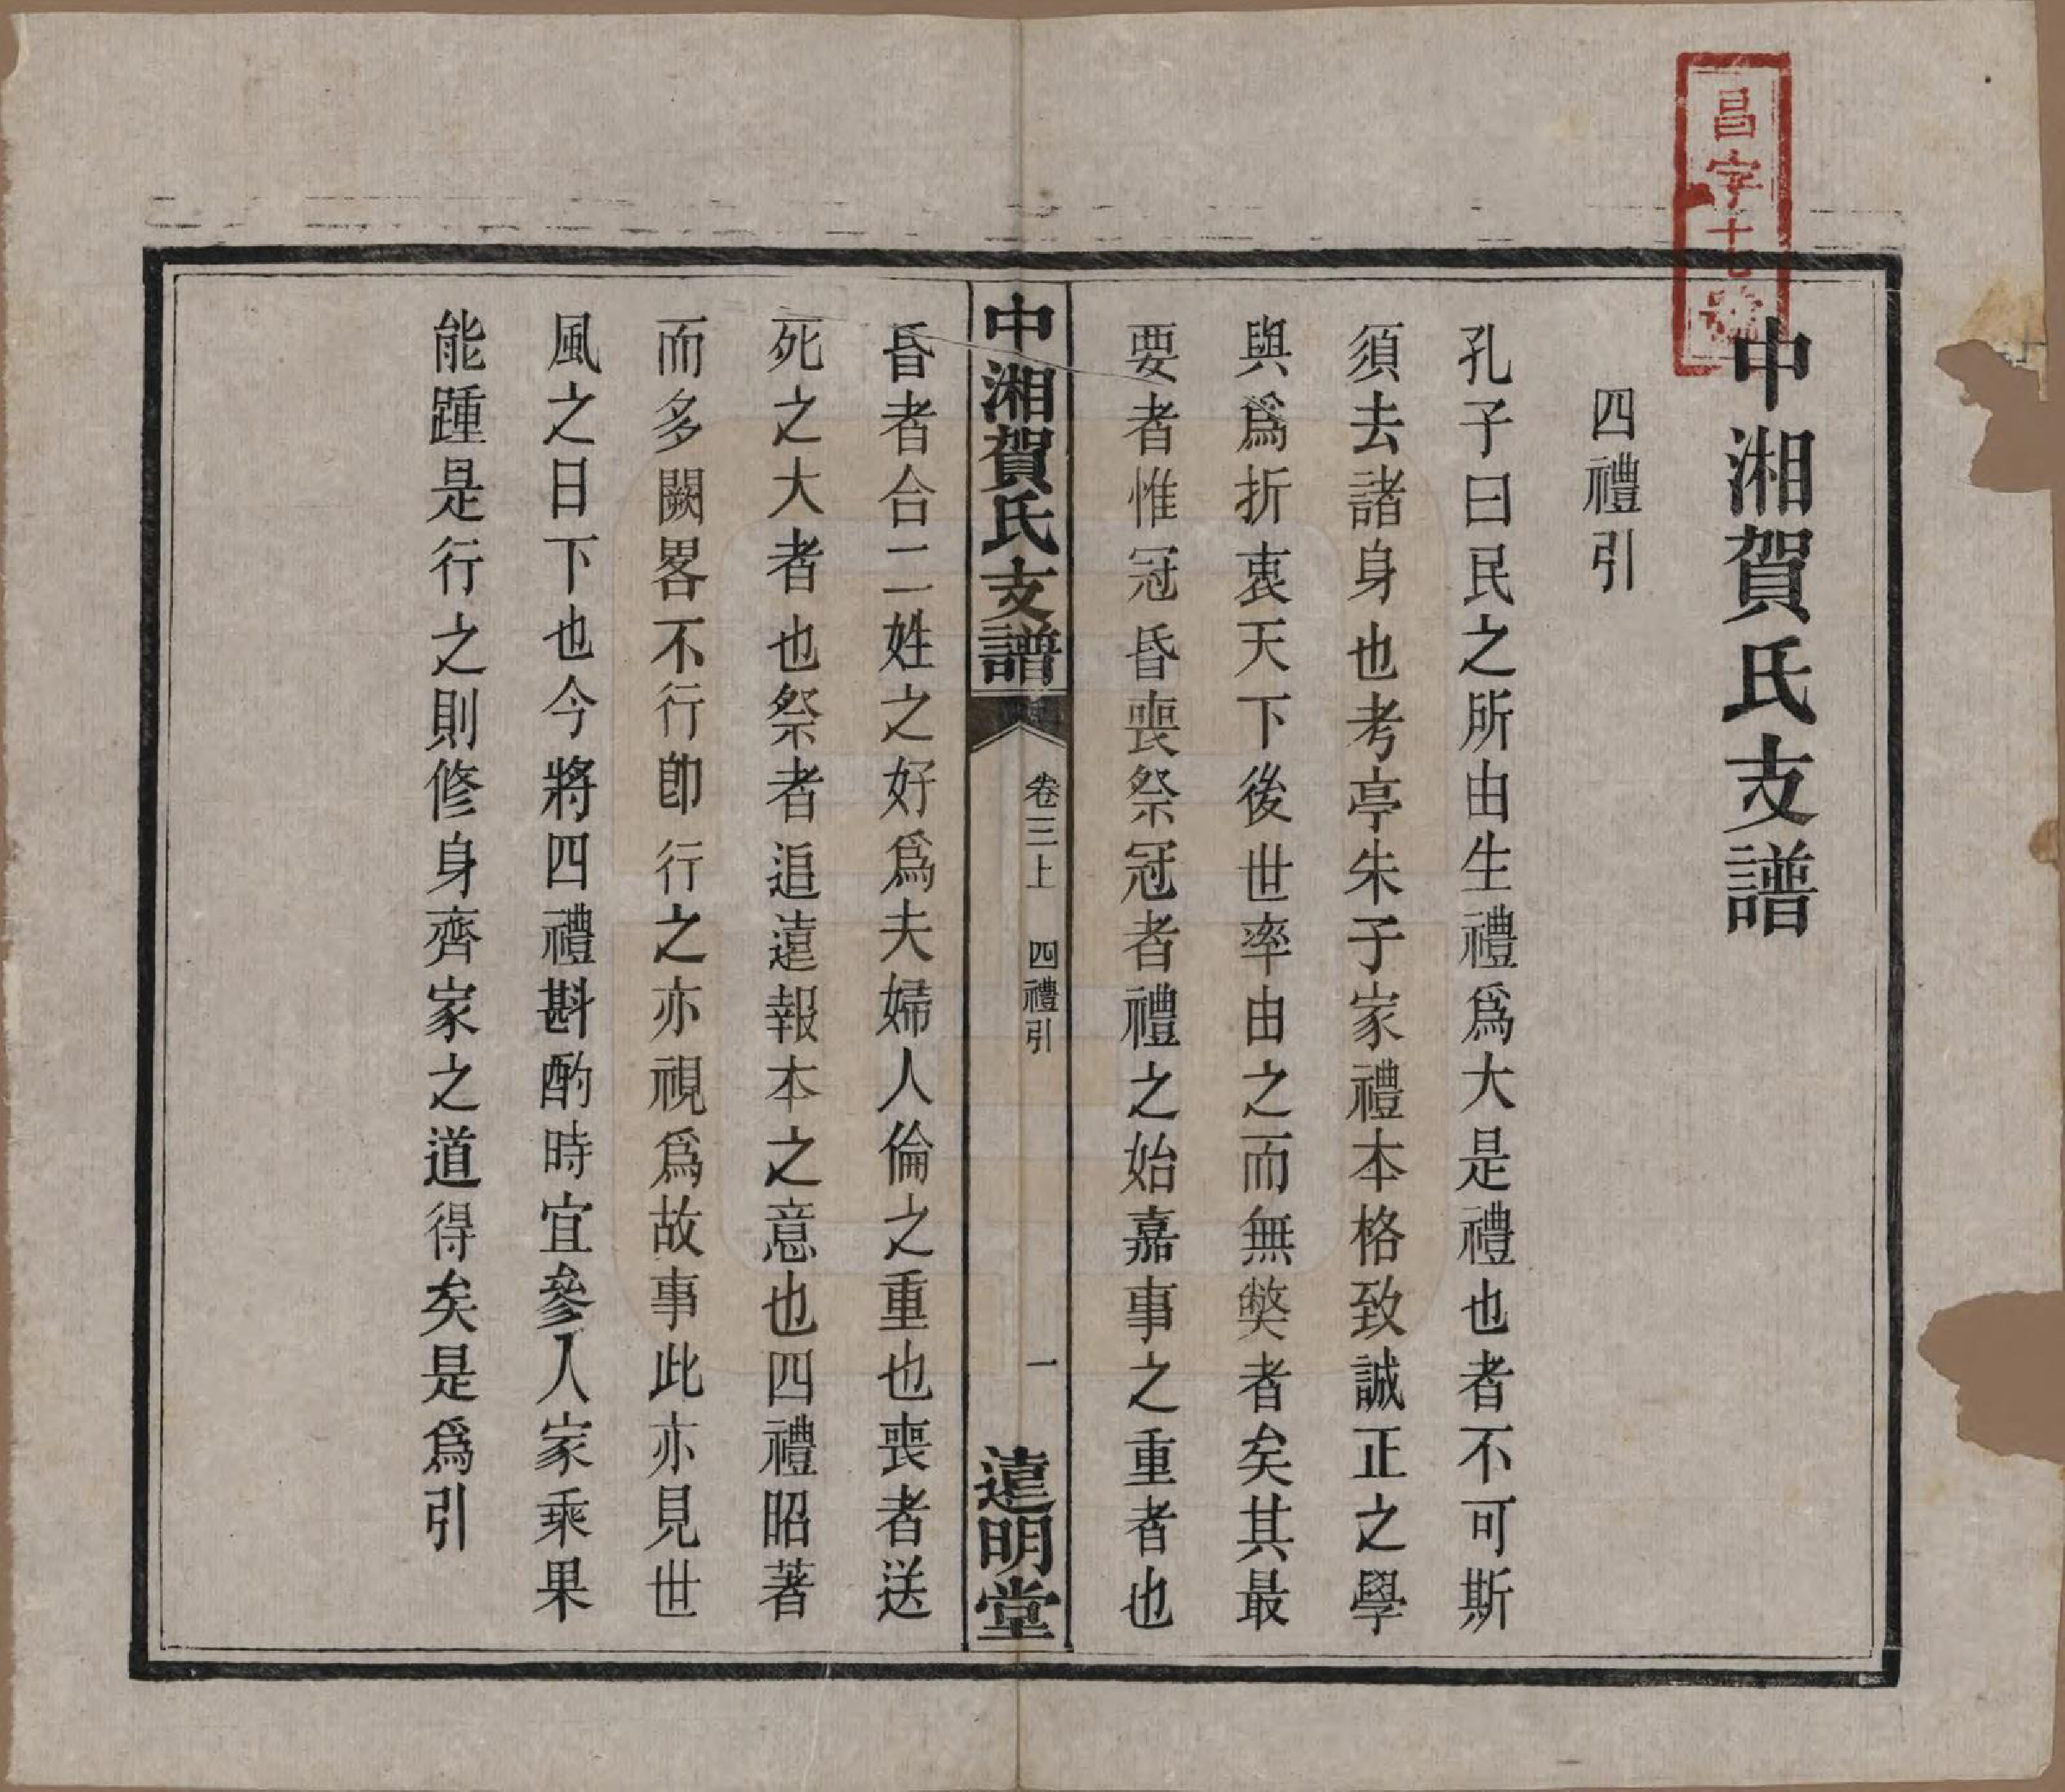 昌字十七號
中湘賀氏支譜
四禮引
孔子曰民之所由生禮爲大是禮也者不可斯
須去諸身也考亭朱子家禮本格致誠正之學
與爲折衷天下後世率由之而無獘者矣其最
要者惟冠昏喪祭冠者禮之始嘉事之重者也
中湘賀氏支譜
卷三上
四禮引
一
遠明堂
昏者合二姓之好爲夫婦人倫之重也喪者送
死之大者也祭者追遠報本之意也四禮昭著
而多闕畧不行卽行之亦視爲故事此亦見世
風之日下也今將四禮斟酌時宜參人家乘果
能踵是行之則修身齊家之道得矣是爲引